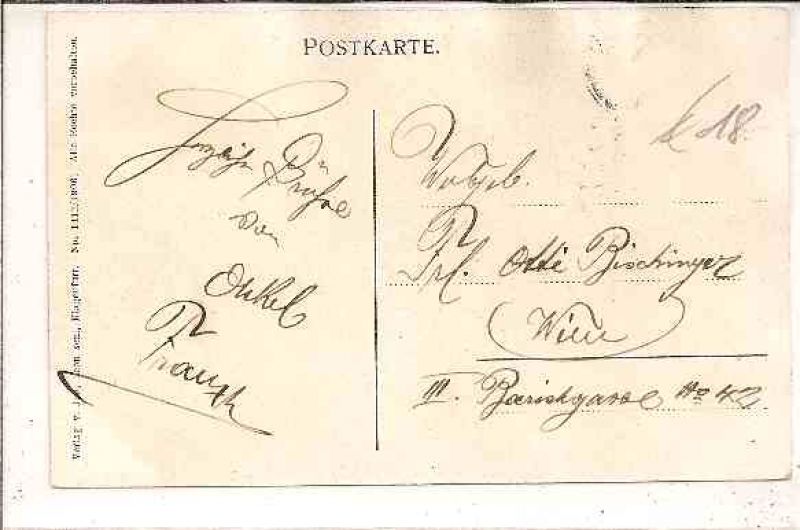 POSTKARTE.
k 18.
Herzliche
Grüße
von
Onkel
Franzl
Wohlgeb.
Frl. Otti Bischinger
Wien
III. No 42
Verlag v. sen., Klagenfurt. No. 1112 (1898) Alle Rechte vorbehalten.